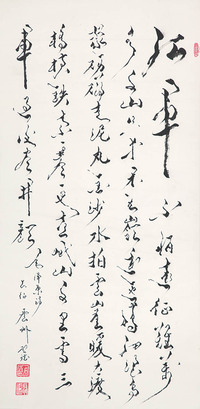 紅軍不怕遠征難萬
水千山只等閒五嶺逶迤騰細浪烏
蒙磅礴走泥丸金沙水拍雲崖暖大渡
橋橫鐵索寒更喜岷山千里雪三
軍過後盡開顏
毛澤東詩